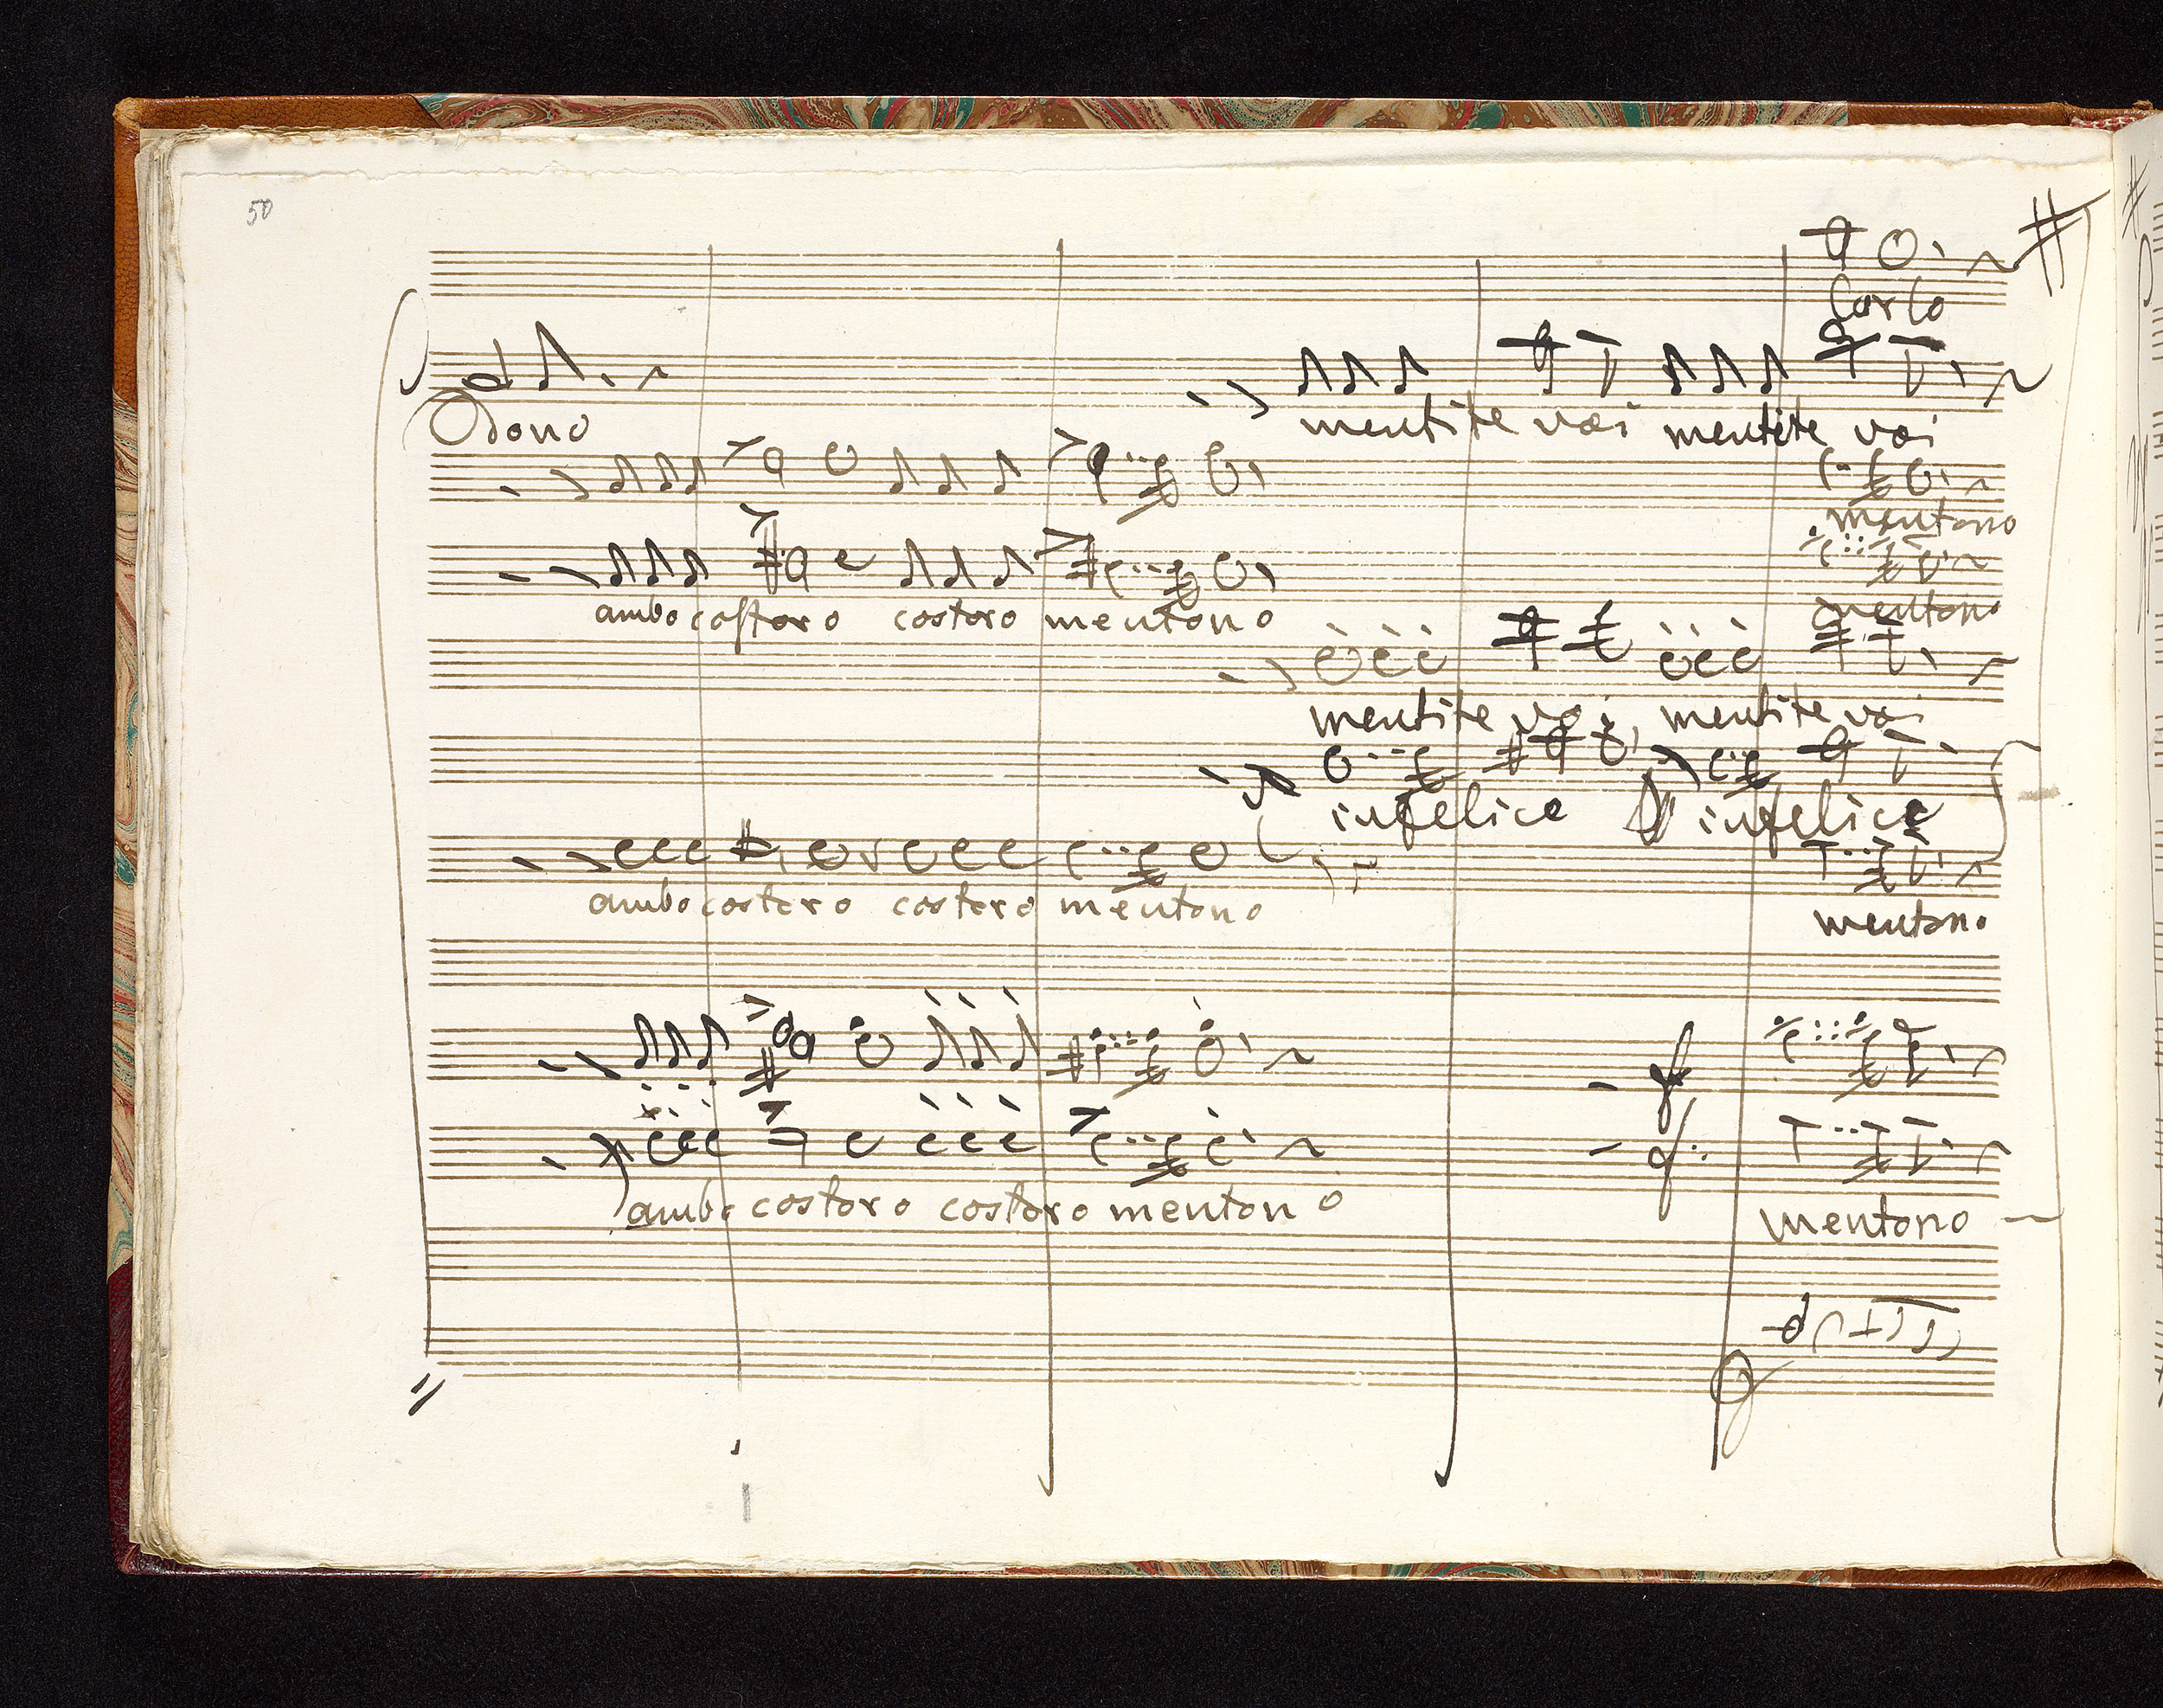 50
Carlo
Odono
mentite voi mentite voi
mentono
ambo costoro costoro mentono
mentono
mentite voi, mentite voi
infelice infelice
ambo costoro costoro mentono
mentono
f
f
ambo costoro costoro mentono
mentono